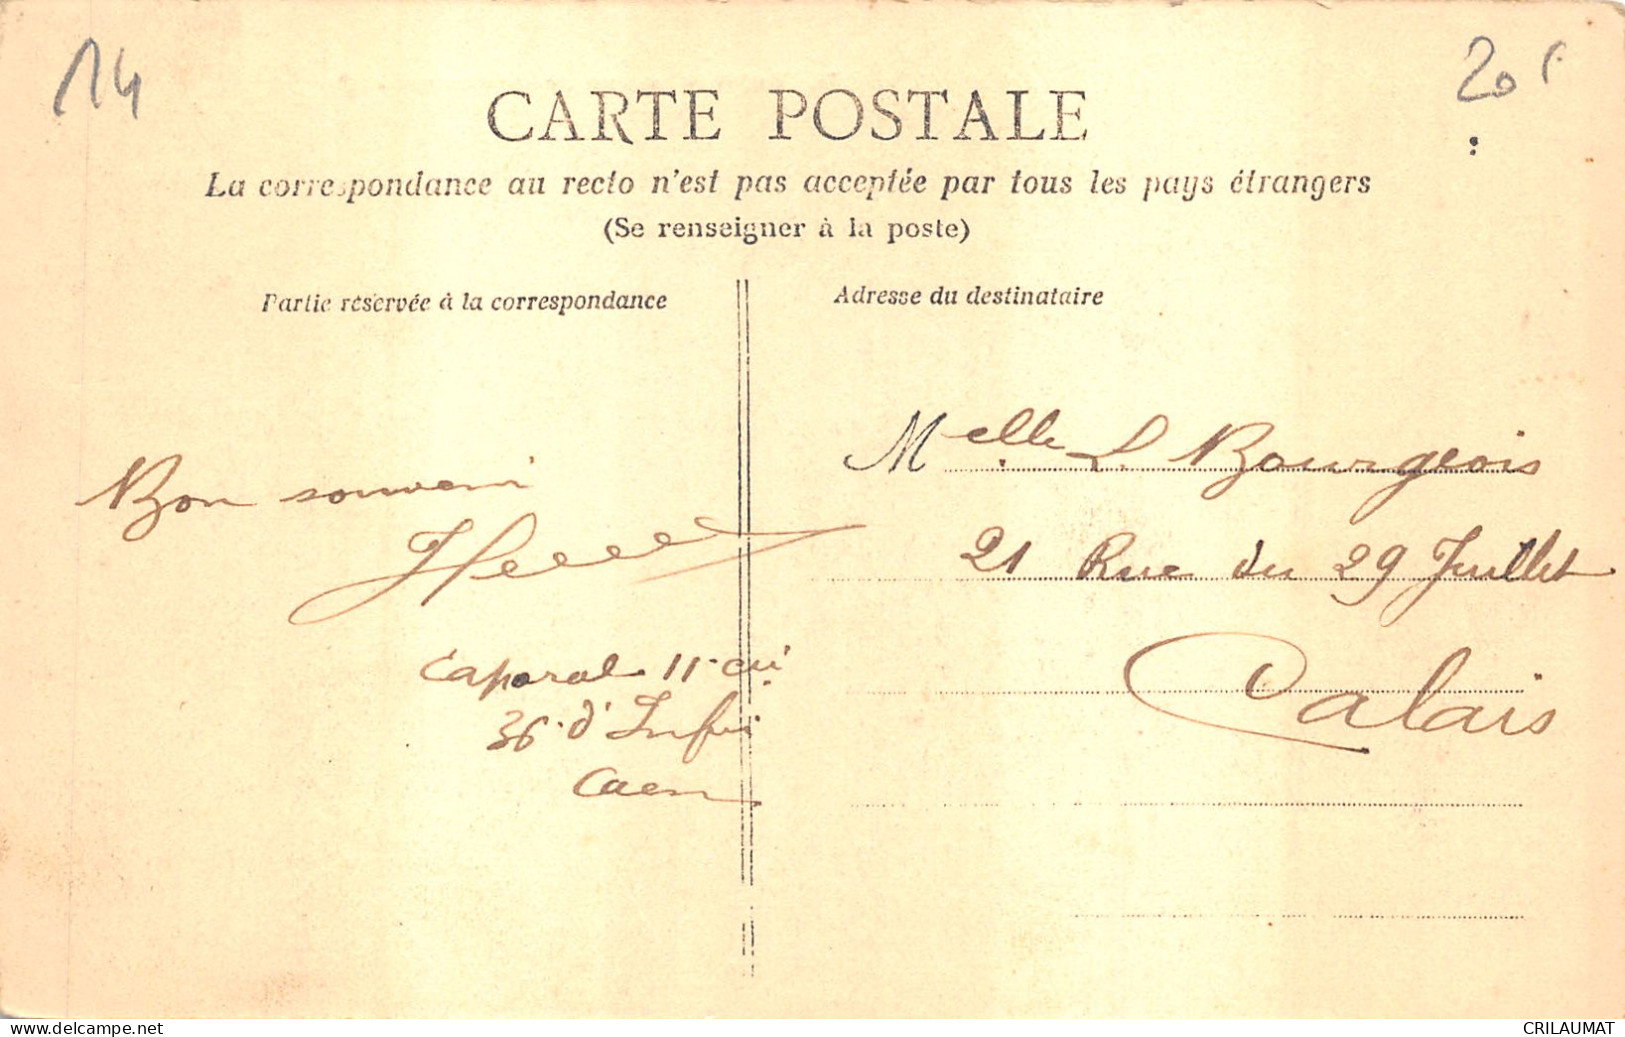 14
20f
CARTE POSTALE
La correspondance au recto n'est pas acceptée par tous les pays étrangers
(Se renseigner à la poste)
Partie réservée à la correspondance
Adresse du destinataire
Bon souvenir
Caporal 11e Cie
36e d'Infie
Caen
Melle L Bourgeois
21 Rue du 29 Juillet
Calais
www.delcampe.net
CRILAUMAT